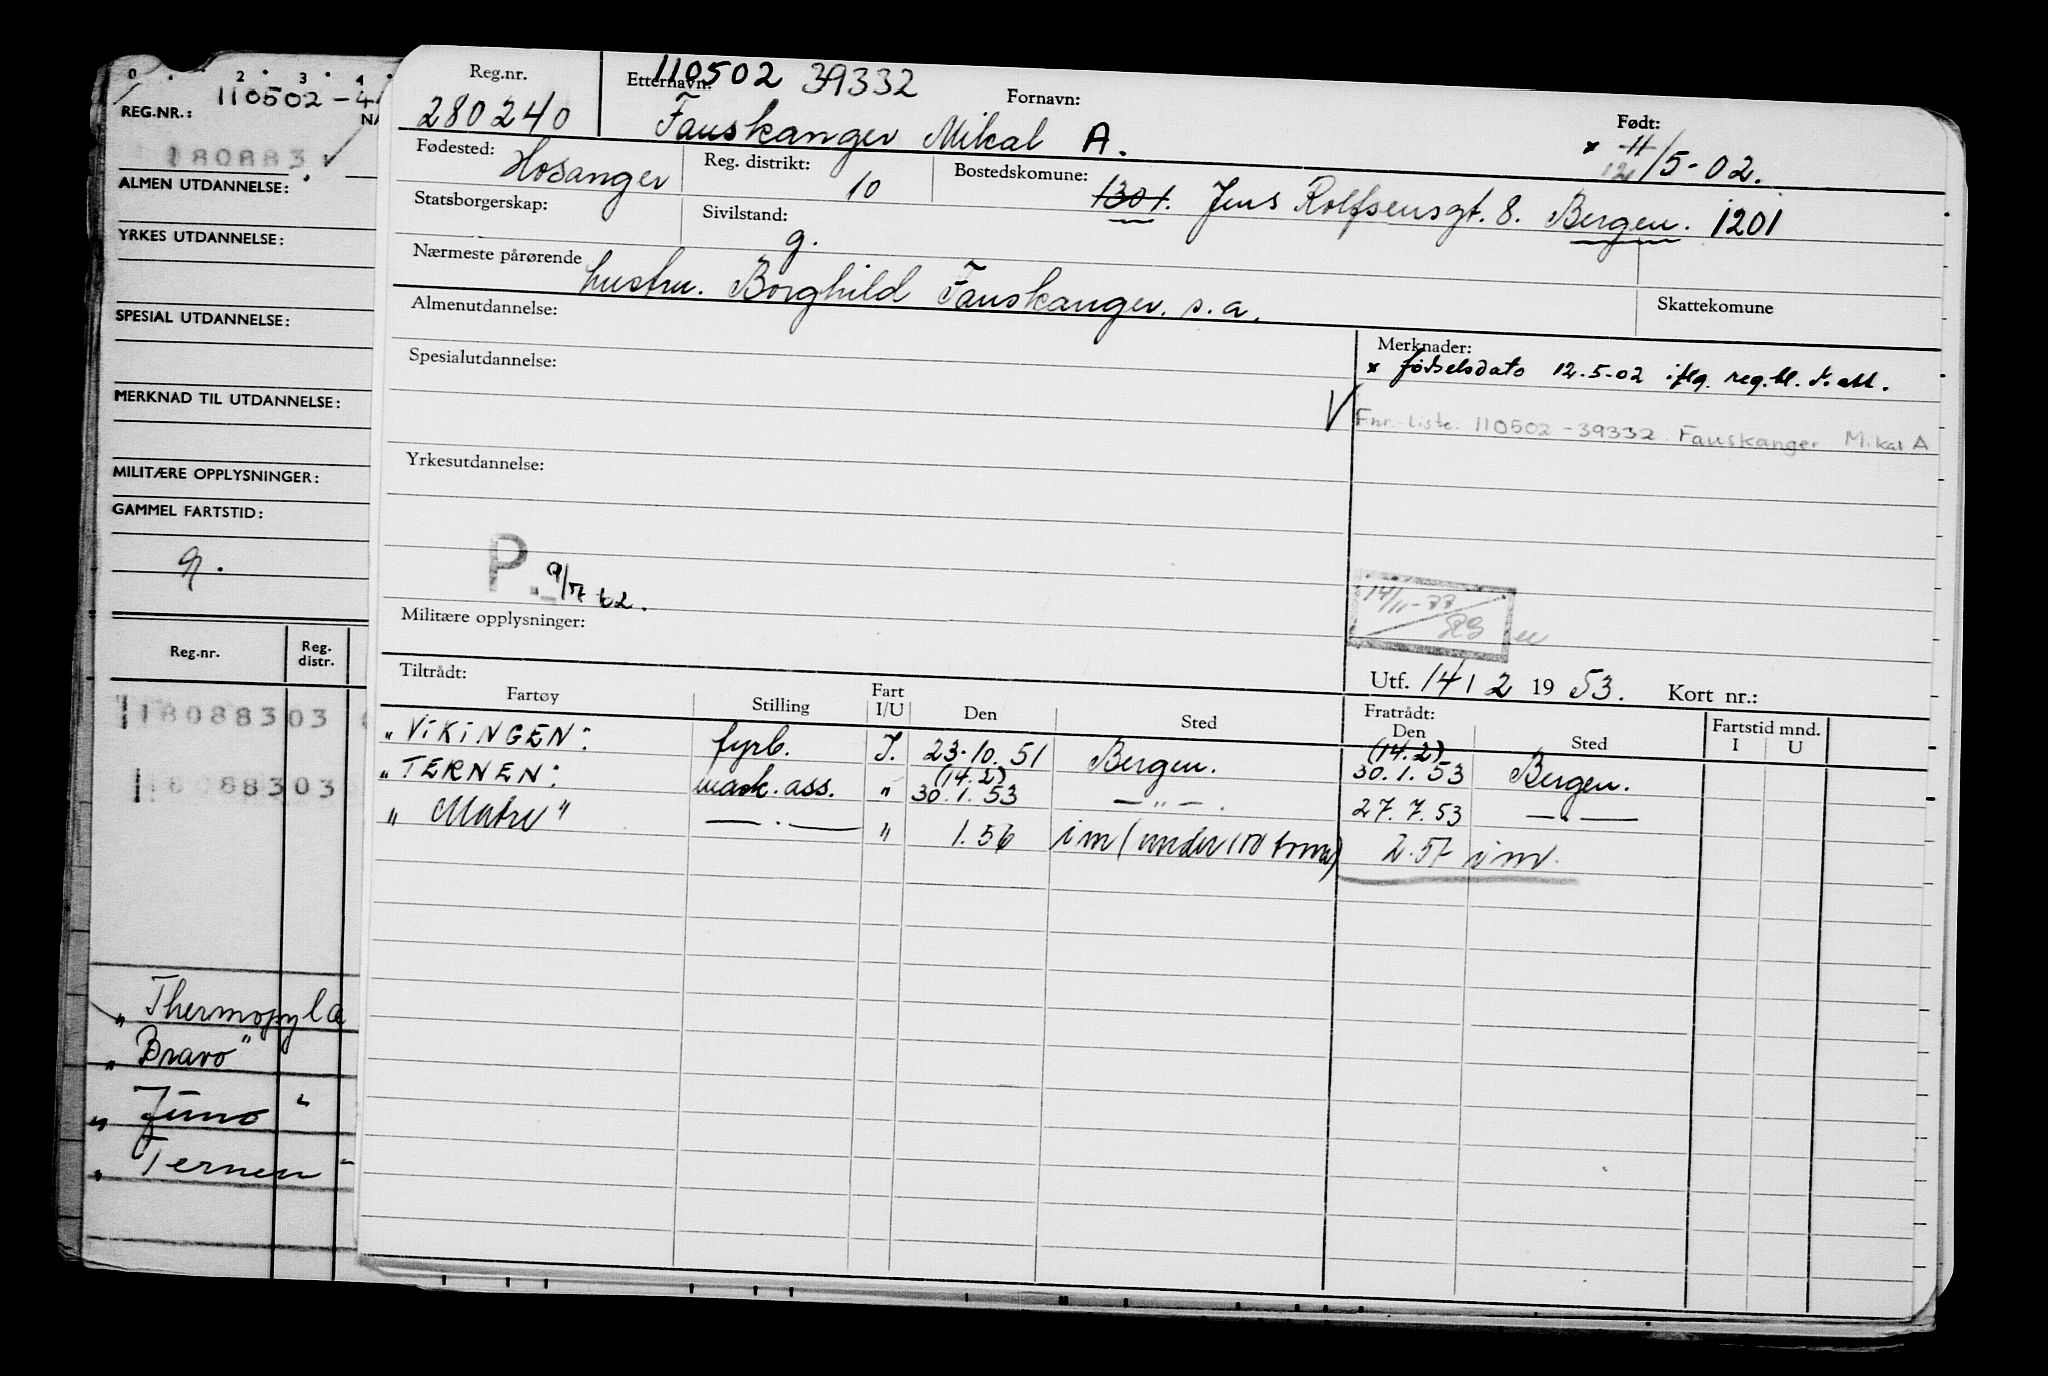 0 . 2 . 3 . 4
REG.NR.: 110502-4
NA
180883
ALMEN UTDANNELSE:
YRKES UTDANNELSE:
SPESIAL UTDANNELSE:
MERKNAD TIL UTDANNELSE:
MILITÆRE OPPLYSNINGER:
GAMMEL FARTSTID:
g.
Reg.nr. Reg. distr.
18088303
18088303
"Thermopylæ
"Bravo"
"Juno"
"Ternen"
Reg.nr. 280240
110502 39332
Etternavn: Fornavn: Født:
Fauskanger Mikal A. x 11/5-02.
12
Fødested: Hosanger Reg. distrikt: 10 Bostedskomune: 1301. Jens Rolfsensgt. 8. Bergen. 1201
Statsborgerskap: Sivilstand: g.
Nærmeste pårørende hustru. Borghild Fauskanger. s.a.
Skattekomune
Almenutdannelse:
Merknader:
x fødselsdato 12.5-02 iflg. reg.bl. f. att.
Spesialutdannelse:
Fnr.-liste: 110502-39332 Fauskanger Mikal A
Yrkesutdannelse:
P. 9/57
14/11-77
Militære opplysninger:
Utf. 14/2 1953. Kort nr.:
Tiltrådt: Fratrådt: Fartstid mnd.
Fartøy Stilling Fart I/U Den Sted Den Sted I U
"VIKINGEN: fyrb. I. 23.10.51 Bergen. (14.2) 30.1.53 Bergen.
"TERNEN: mask. ass. " (14.2) 30.1.53 —"—. 27.7.53 —"—
"Matre" —.— " 1.56 im (under 100 tonn) 2.57 im.